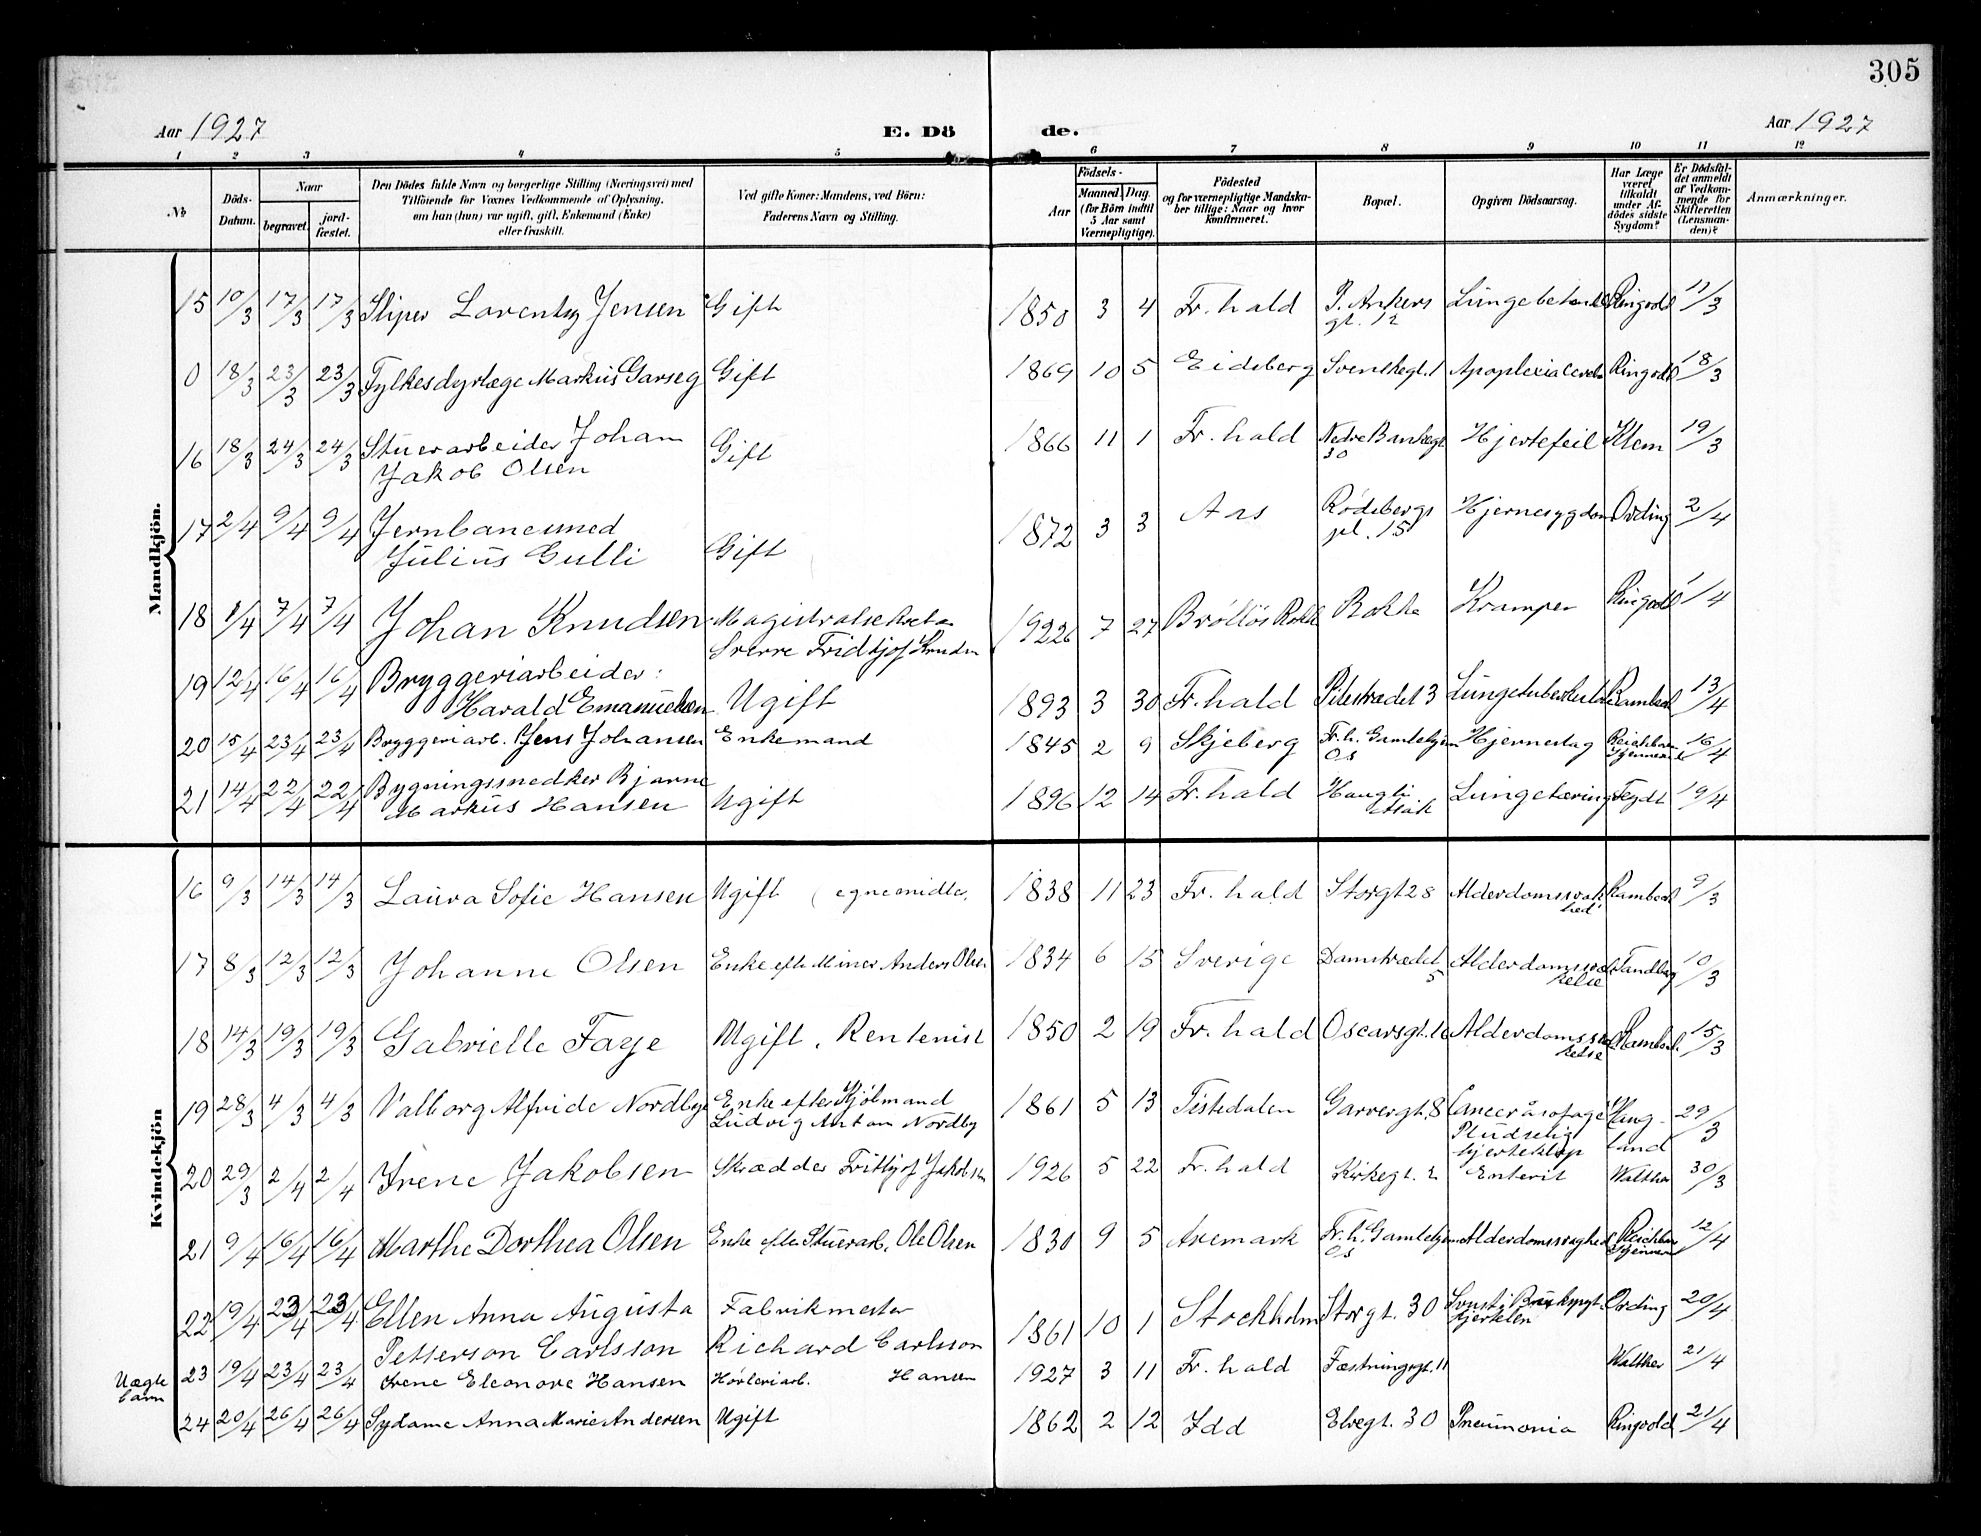 305
Aar 1927 E. Dö de. Aar 1927
1 2 3 4 5 6 7 8 9 10 11 12
No
Döds-Datum.
Naar
begravet.
jord-fæstet.
Den Dödes fulde Navn og borgerlige Stilling (Næringsvei) med
Tilföiende for Voxnes Vedkommende af Oplysning,
om han (hun) var ugift, gift, Enkemand (Enke)
eller fraskilt.
Ved gifte Koner: Mandens, ved Börn:
Faderens Navn og Stilling.
Födsels-
Aar
Maaned. Dag.
(for Börn indtil
5 Aar samt
Værnepligtige).
Födested
og for værnepligtige Mandska-
ber tillige: Naar og hvor
konfirmeret.
Bopæl.
Opgiven Dödsaarsag.
Har Læge
været
tilkaldt
under Af-
dödes sidste
Sygdom?
Er Dödsfal-
det anmeldt
af Vedkom-
mende for
Skifteretten
(Lensman-
den)?
Anmærkninger.
Mandkjön.
15 10/3 17/3 17/3 Sliper Lorentz Jensen Gift 1850 3 4 Fr.hald P. Ankers gt. 12 Ringvold 11/3
0 18/3 23/3 23/3 Fylkesdyrlæge Markus Garseg Gift 1869 10 5 Eidsberg Svenskegt. 1 Apoplexia Ringvold 18/3
16 18/3 24/3 24/3 Stuerarbeider Johan
Jakob Olsen Gift 1866 11 1 Fr.hald Nedre Bankegt. 30 Hjertefeil Klem 19/3
17 2/4 9/4 9/4 Jernbanemed
Julius Gulli Gift 1872 3 3 Aas Rødsbergs pl. 15 Hjernesygdom Ording 2/4
18 1/4 7/4 7/4 Johan Knudsen Magistratsekretær
Sverre Fridtjof Knudsen 1926 7 27 Rokke Rokke Kramper Ringvold 1/4
19 12/4 16/4 16/4 Bryggeriarbeider:
Harald Emanuelsen Ugift 1893 3 30 Fr.hald Pilestrædet 3 Lungetuberkulose Rambech 13/4
20 15/4 23/4 23/4 Bryggeriarb. Jens Johansen Enkemand 1845 2 9 Skjeberg Fr.h. Gamlehjem Os Hjerneslag 16/4
21 14/4 22/4 22/4 Bygningssnedker Bjarne
Markus Hansen Ugift 1896 12 14 Fr.hald Haugli Lungetæring Feydt 19/4
Kvindekjön
16 9/3 14/3 14/3 Laura Sofie Hansen Ugift (egne midler, 1838 11 23 Fr.hald Storgt 28 Alderdomssvakhed Rambech 9/3
17 8/3 12/3 12/3 Johanne Olsen Enke efter Miner Anders Olsen 1834 6 15 Sverige Damstrædet 5 Alderdomssvækkelse Tandberg 10/3
18 14/3 19/3 19/3 Gabrielle Faye Ugift, Rentenist 1850 2 19 Fr.hald Oscarsgt. 16 Alderdomssvækkelse Rambech. 15/3
19 28/3 4/3 4/3 Valborg Alfride Nordbye Enke efter Kjøbmand
Ludvig Anton Nordby 1861 5 13 Tistedalen Garvergt. 8 Pludselig
hjerteklap Haugland 29/3
20 29/3 2/4 2/4 Irene Jakobsen Skrædder Frithjof Jakobsen 1926 5 22 Fr.hald Kirkegt. 2 Enterit Walther 30/3
21 9/4 16/4 16/4 Marthe Dorthea Olsen Enke efter Stuerarb. Ole Olsen 1830 9 5 Aremark Fr.h. Gamlehjem Os Alderdomssvaghed 12/4
22 19/4 23/4 23/4 Ellen Anna Augusta
Petterson Carlsson Fabrikmester
Richard Carlsson 1861 10 1 Stockholm Storgt. 30 Ording 20/4
Uægte
barn 23 19/4 23/4 23/4 Irene Eleonore Hansen Høvleriarb. Hansen 1927 3 11 Fr.hald Fæstningsgt. 11 Walther 21/4
24 20/4 26/4 26/4 Sydame Anna Marie Andersen Ugift 1862 2 12 Idd Elvegt. 30 Pneumonia Ringvold 21/4